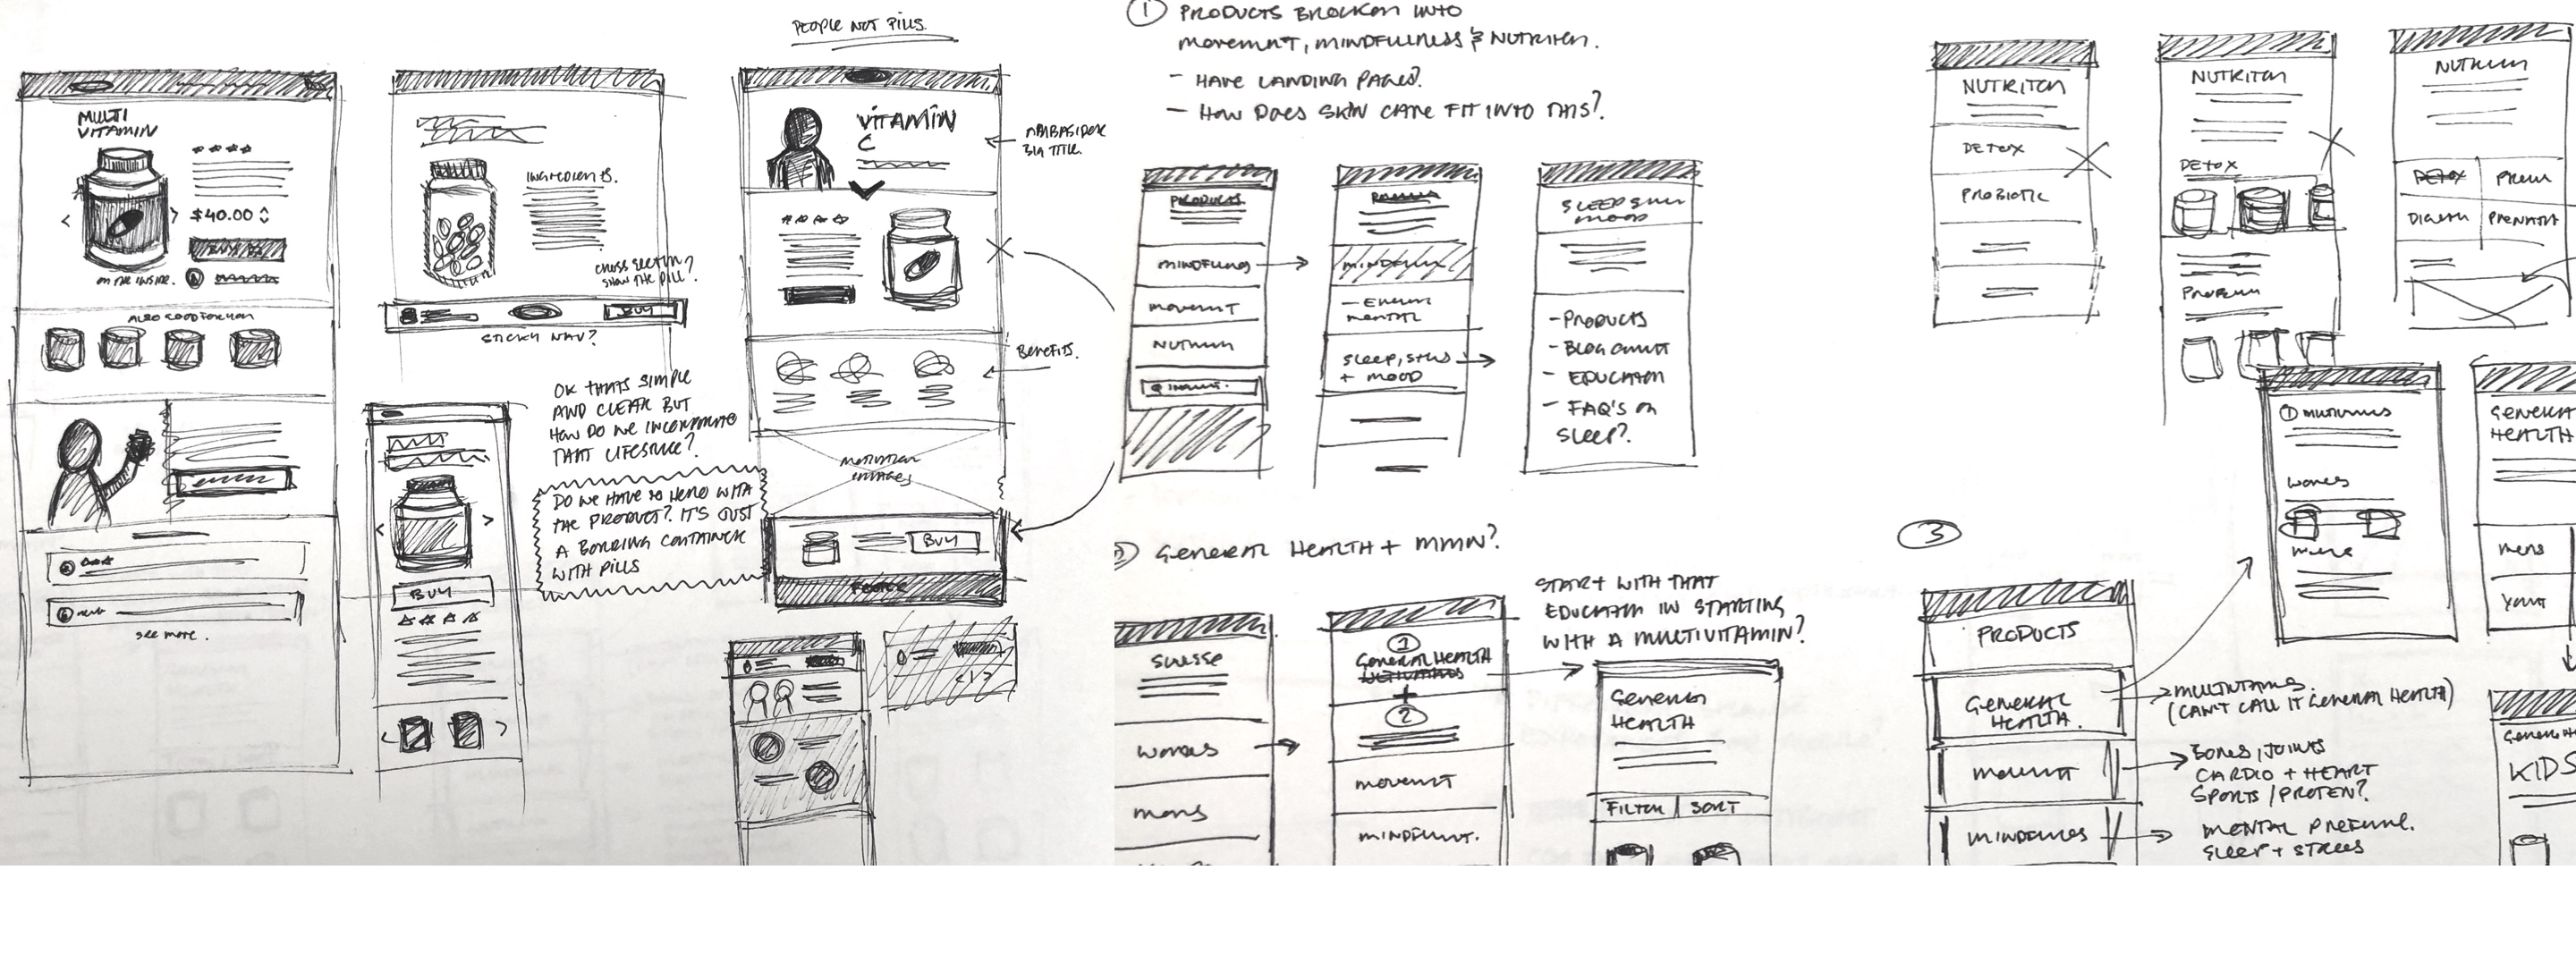 PEOPLE NOT PILLS.
MULTI
VITAMIN
$40.00
ON THE INSIDE.
ALSO GOOD FOR YOU
SEE MORE.
INGREDIENTS.
CROSS SECTION?
SHOW THE PILL?
BUY
STICKY NAV?
OK THATS SIMPLE
AND CLEAR BUT
HOW DO WE INCORPORATE
THAT LIFESTYLE?
DO WE HAVE TO HERO WITH
THE PRODUCT? IT'S JUST
A BORING CONTAINER
WITH PILLS
BUY
VITAMIN
C
BIG TITLE.
BENEFITS.
BUY
FOOTER
① PRODUCTS BROCKEN INTO
MOVEMENT, MINDFULLNESS & NUTRITON.
- HAVE LANDING PAGES?
- HOW DOES SKIN CARE FIT INTO THIS?
PRODUCTS
MINDFULNESS
MOVEMENT
NUTRITION
MENTAL
SLEEP, STRESS
+ MOOD
SLEEP STRESS
MOOD
- PRODUCTS
- BLOG CONTENT
- EDUCATION
- FAQ'S ON
SLEEP?
② GENERAL HEALTH + MAIN?
START WITH THAT
EDUCATION IN STARTING
WITH A MULTIVITAMIN?
SWISSE
WOMENS
MENS
①
GENERAL HEALTH
+
②
MOVEMENT
MINDFULNESS.
GENERAL
HEALTH
FILTER | SORT
NUTRITON
DETOX
PROBIOTIC
NUTRITON
DETOX
PROTEIN
NUTRITION
DETOX
PRENATAL
① MULTIVITAMINS
WOMENS
MENS
GENERAL
HEALTH
MENS
③
PRODUCTS
GENERAL
HEALTH.
MOVEMENT
MINDFULNESS
MULTIVITAMINS.
(CAN'T CALL IT GENERAL HEALTH)
BONES, JOINTS
CARDIO + HEART
SPORTS / PROTEN?
MENTAL
SLEEP + STRESS
KIDS